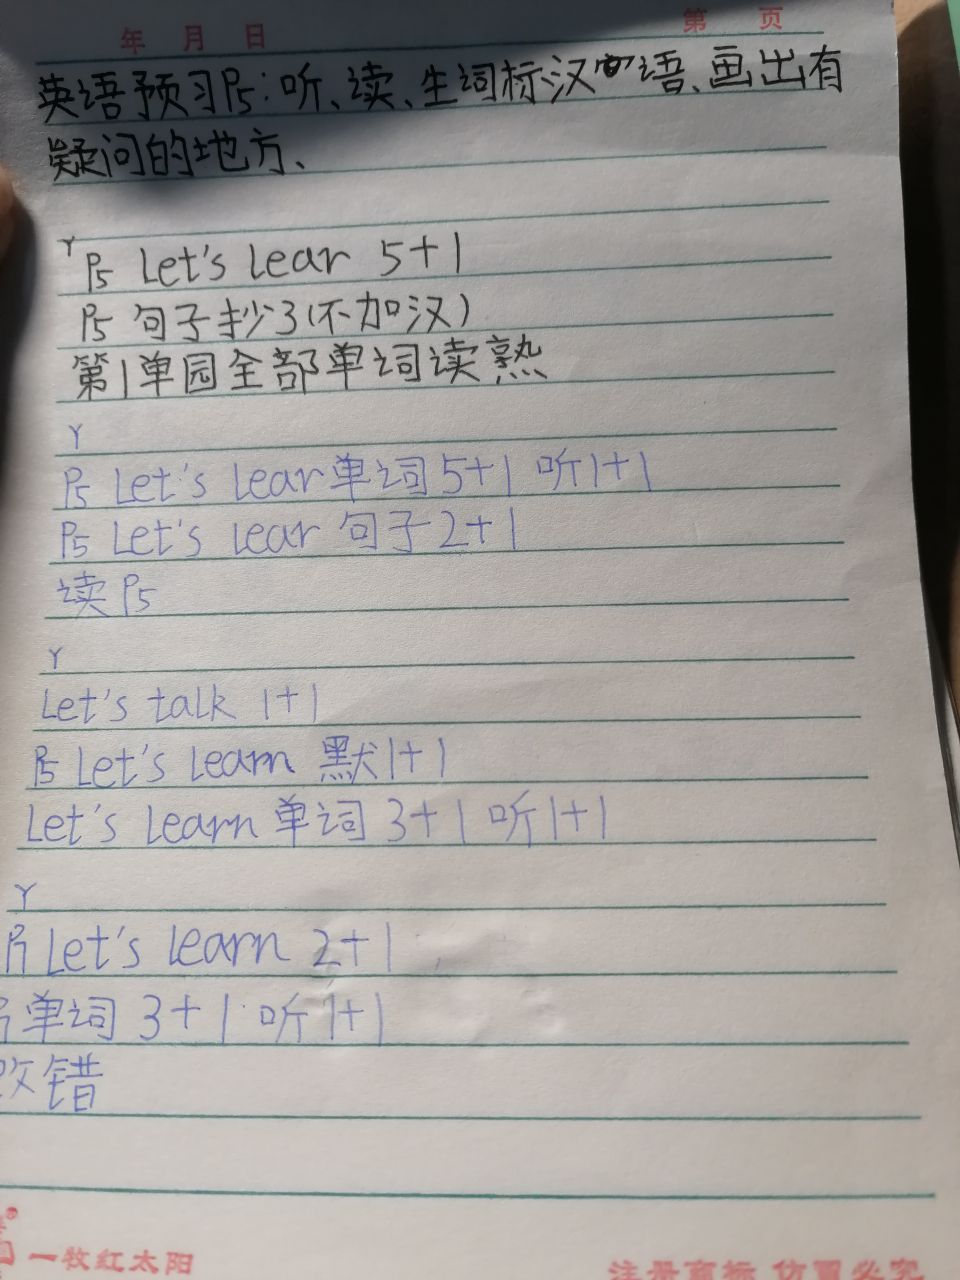 年 月 日 第 页
英语预习P5:听、读、生词标汉语、画出有
疑问的地方、
Y
P5 Let's lear 5+1
P5 句子抄3(不加汉)
第1单园全部单词读熟
Y
P5 Let's lear单词5+1 听1+1
P5 Let's lear 句子2+1
读P5
Y
Let's talk 1+1
P5 Let's learn 默1+1
Let's learn单词 3+1 听1+1
Y
Let's learn 2+1
单词 3+1 听1+1
改错
一牧红太阳
注册商标 仿冒必究